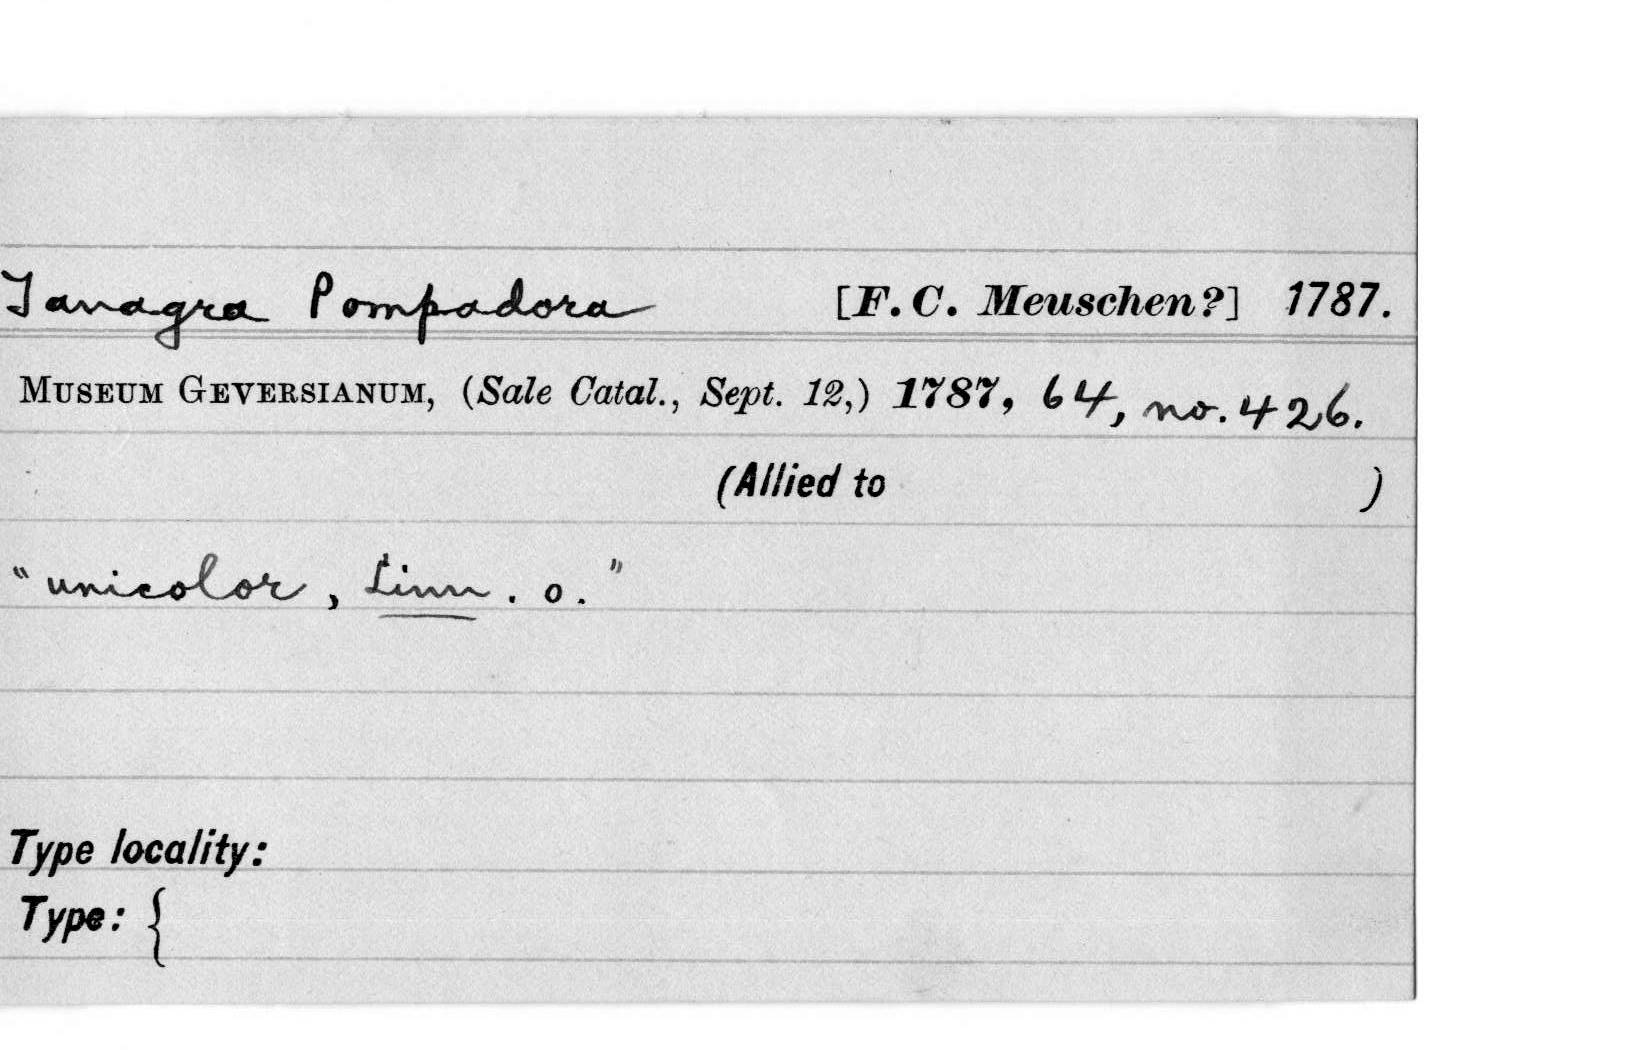 Tanagra Pompadora [F. C. Meuschen?] 1787.
MUSEUM GEVERSIANUM, (Sale Catal., Sept. 12,) 1787, 64, no. 426.
(Allied to )
"unicolor, Linn. o."
Type locality:
Type: {